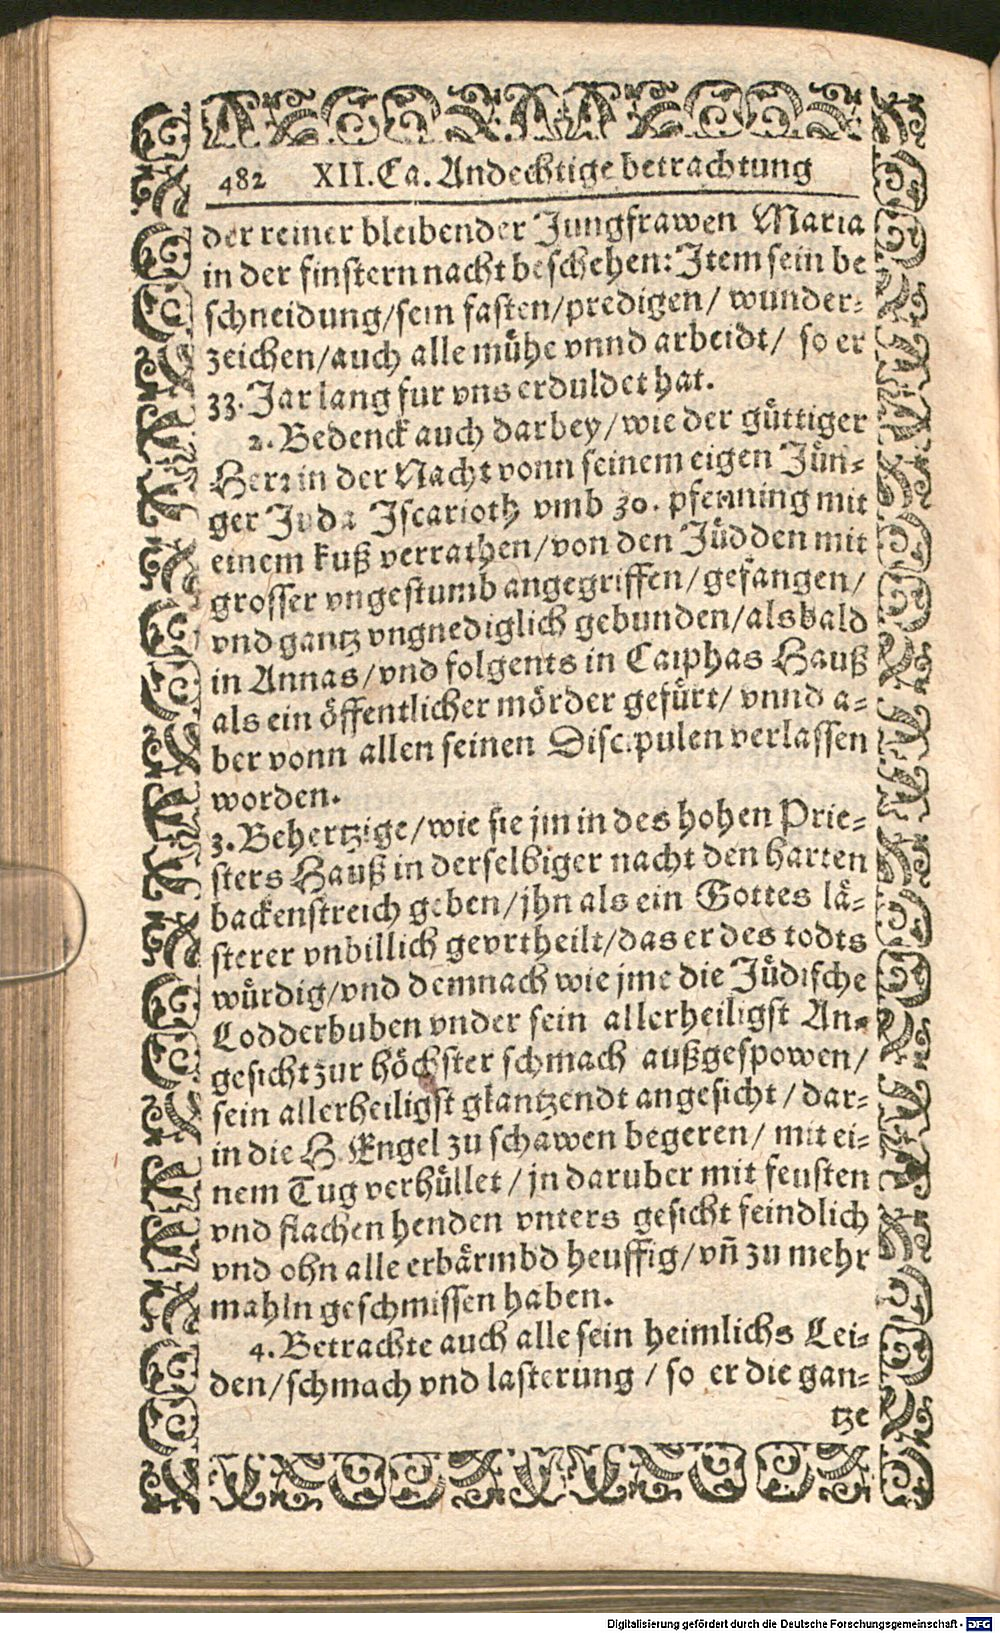 482 XII. Ca. Andechtige betrachtung
der reiner bleibender Jungfrawen Maria
in der finstern nacht beschehen: Item sein be
schneidung/sein fasten/predigen/ wunder-
zeichen/auch alle mühe vnnd arbeidt/ so er
33. Jar lang fur vns erduldet hat.
2. Bedenck auch darbey/wie der güttiger
Herr in der Nacht vonn seinem eigen Jün-
ger Juda Iscarioth vmb 30. pfenning mit
einem kuß verrathen/von den Jüdden mit
grosser vngestumb angegriffen/gefangen/
vnd gantz vngnediglich gebunden/alsbald
in Annas/vnd folgents in Caiphas Hauß
als ein öffentlicher mörder gefürt/ vnnd a-
ber vonn allen seinen Discipulen verlassen
worden.
3. Behertzige/wie sie jm in des hohen Prie-
sters Hauß in derselbiger nacht den harten
backenstreich geben/jhn als ein Gottes lä-
sterer vnbillich geurtheilt/das er des todts
würdig/vnd demnach wie jme die Jüdische
Lodderbuben vnder sein allerheiligst An-
gesicht zur höchster schmach außgespowen/
sein allerheiligst glantzendt angesicht/dar-
in die H. Engel zu schawen begeren/ mit ei-
nem Tug verhüllet/jn daruber mit feusten
vnd flachen henden vnters gesicht feindlich
vnd ohn alle erbärmbd heuffig/vñ zu mehr
mahln geschmissen haben.
4. Betrachte auch alle sein heimlichs Lei-
den/schmach vnd lasterung/so er die gan-
tze
Digitalisierung gefördert durch die Deutsche Forschungsgemeinschaft - DFG